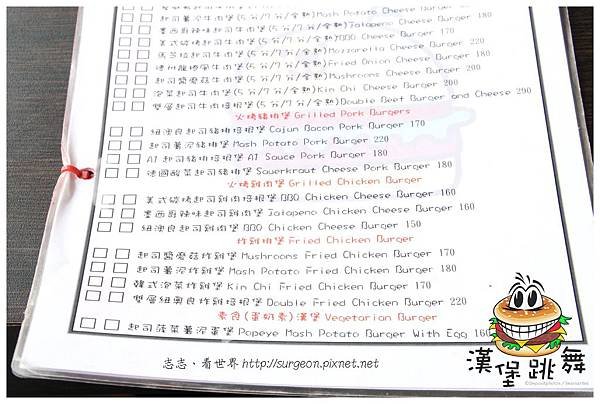 起司薯泥牛肉堡(5分/7分/全熟)Mash Potato Cheese Burger
墨西哥辣味起司牛肉堡(5分/7分/全熟)Jalapeno Cheese Burger 180
美式碳烤起司牛肉堡(5分/7分/全熟)BBQ Cheese Burger 170
馬芝拉起司牛肉堡(5分/7分/全熟)Mozzarella Cheese Burger 220
德州龍捲風牛肉堡(5分/7分/全熟)Fried Onion Cheese Burger 180
起司醬蘑菇牛肉堡(5分/7分/全熟)Mushrooms Cheese Burger 200
泡菜起司牛肉堡(5分/7分/全熟)Kin Chi Cheese Burger 200
雙層起司牛肉培根堡(5分/7分/全熟)Double Beef Burger and Cheese 290
火烤豬肉堡 Grilled Pork Burgers
紐澳良起司豬排培根堡 Cajun Bacon Pork Burger 170
起司薯泥豬排堡 Mash Potato Pork Burger 220
A1起司豬排培根堡 A1 Sauce Pork Burger 180
德國酸菜起司豬排堡 Sauerkraut Cheese Pork Burger 180
火烤雞肉堡 Grilled Chicken Burger
美式碳烤起司雞肉培根堡 BBQ Chicken Cheese Burger 160
墨西哥辣味起司雞肉堡 Jalapeno Chicken Cheese Burger 160
紐澳良起司雞肉堡 BBQ Chicken Cheese Burger 150
炸雞排堡 Fried Chicken Burger
起司醬蘑菇炸雞堡 Mushrooms Fried Chicken Burger 170
起司薯泥炸雞堡 Mash Potato Fried Chicken Burger 180
韓式泡菜炸雞堡 Kin Chi Fried Chicken Burger 170
雙層紐奧良炸雞培根堡 Double Fried Chicken Burger 220
素食(蛋奶素)漢堡 Vegetarian Burger
起司菠菜薯泥蛋堡 Popeye Mash Potato Burger With Egg 160
志志、看世界 http://surgeon.pixnet.net
漢堡跳舞